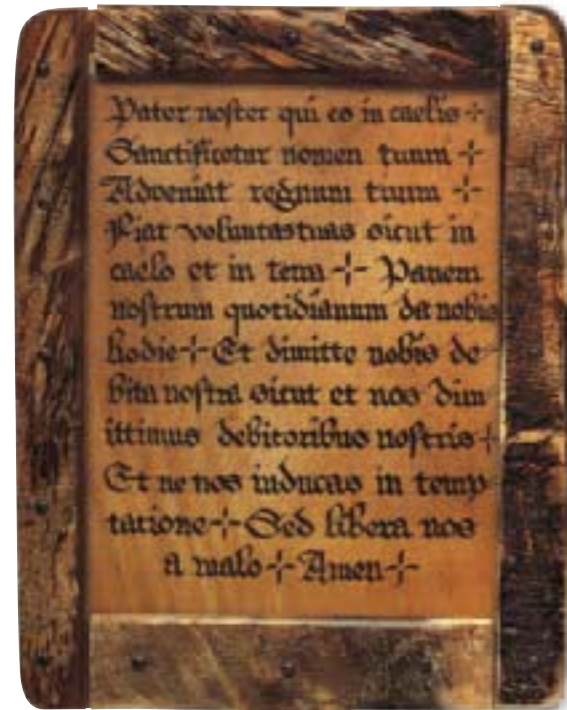 Pater noster qui es in caelis ⁘
Sanctificetur nomen tuum ⁘
Adveniat regnum tuum ⁘
Fiat voluntas tuas sicut in
caelo et in terra ⁘ Panem
nostrum quotidianum da nobis
hodie ⁘ Et dimitte nobis de
bita nostra sicut et nos dim
ittimus debitoribus nostris ⁘
Et ne nos inducas in temp
tatione ⁘ Sed libera nos
a malo ⁘ Amen ⁘